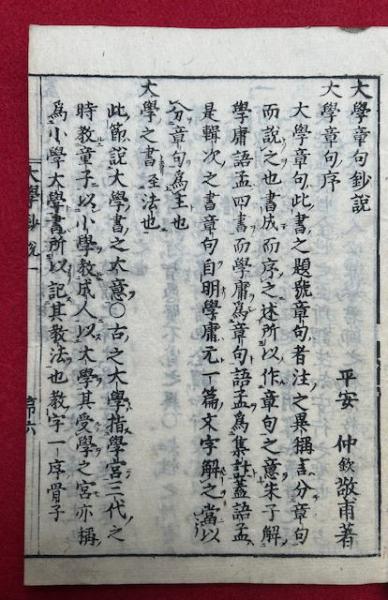 大學章句鈔說
平安 仲欽敬甫著
大學章句序
大學章句此書之題號章句者注之異稱言分章句
而說之也書成而序之述所以作章句之意朱子解
學庸語孟四書而學庸為章句語孟為集註蓋語孟
是輯次之書章句自明學庸元一篇文字解之當以
分章句為主也
大學之書至法也
此節說大學書之大意○古之大學指學宮三代之
時教童子以小學教成人以大學其受學之宮亦稱
為小學大學書所以記其教法也教字一序骨子
大學鈔說一